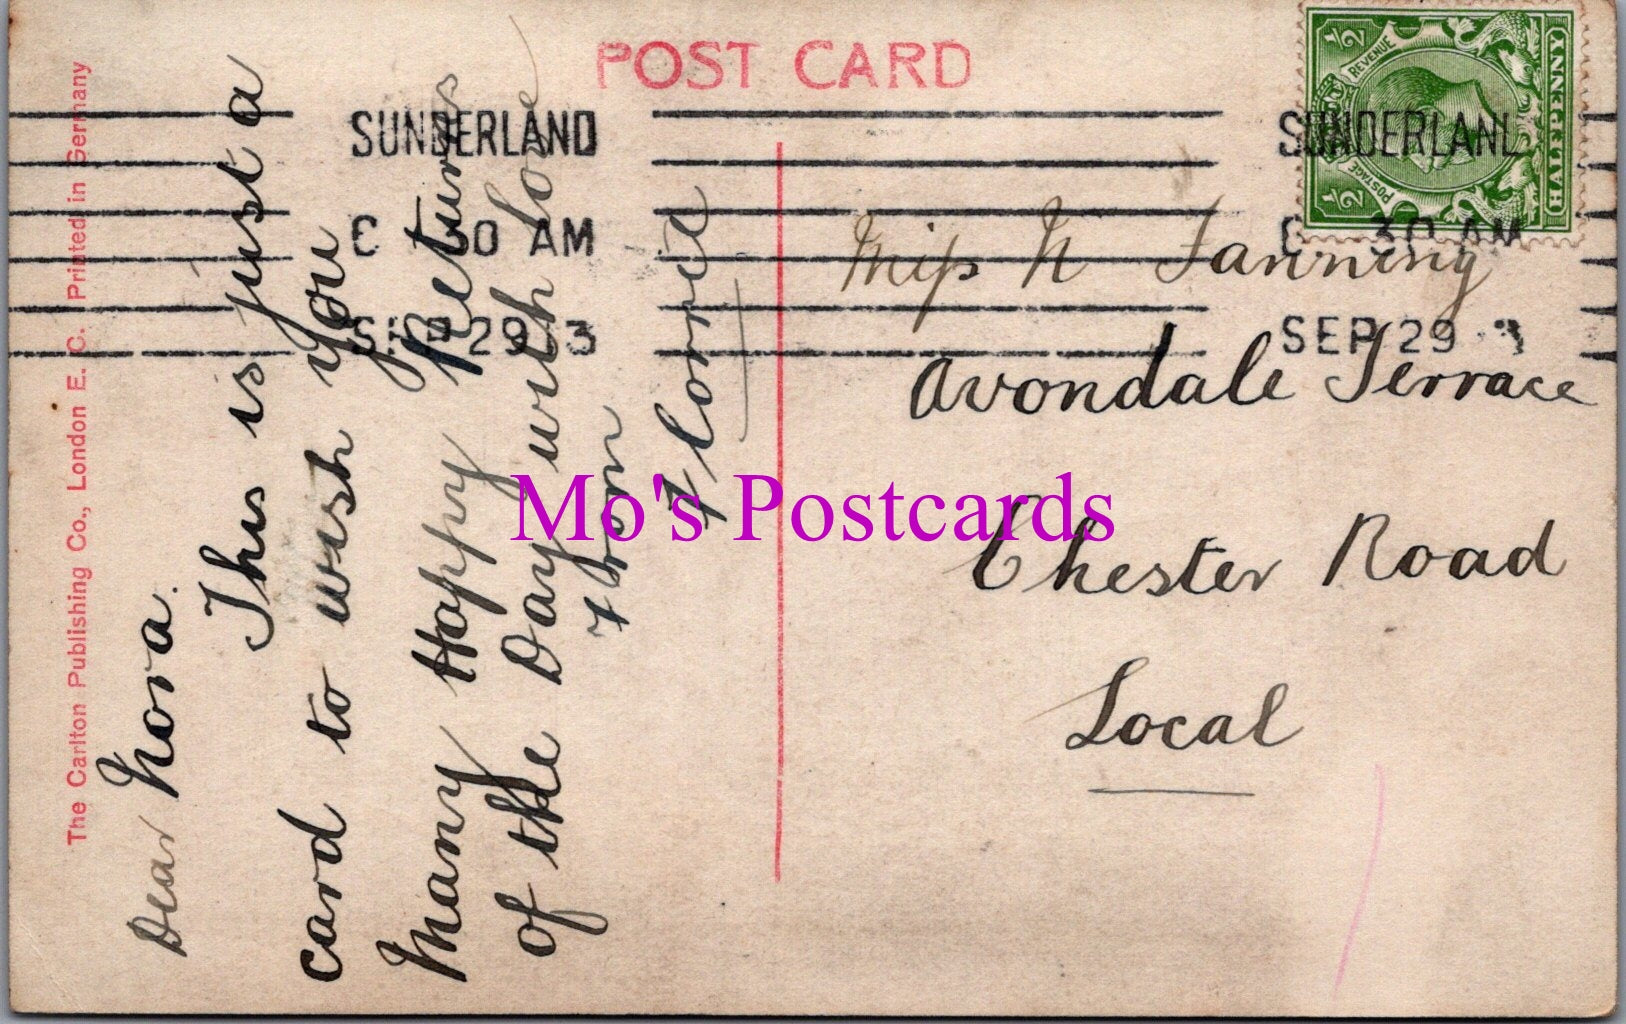 POST CARD
The Carlton Publishing Co., London E. C. Printed in Germany
SUNDERLAND
30 AM
SEP 29 13
SUNDERLAND
30 AM
SEP 29
1/2 REVENUE
1/2 POSTAGE
HALFPENNY
Dear Nora.
This is just a
card to wish you
Many Happy Returns
of the Day with love
from
Florrie
Miss N Fanning
Avondale Terrace
Chester Road
Local
Mo's Postcards